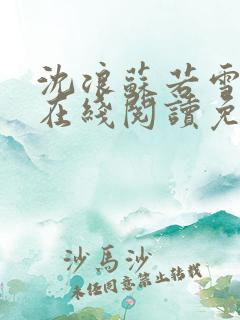 沈浪蘇若雪
在綫閱讀免
沙馬沙
未经同意禁止转载